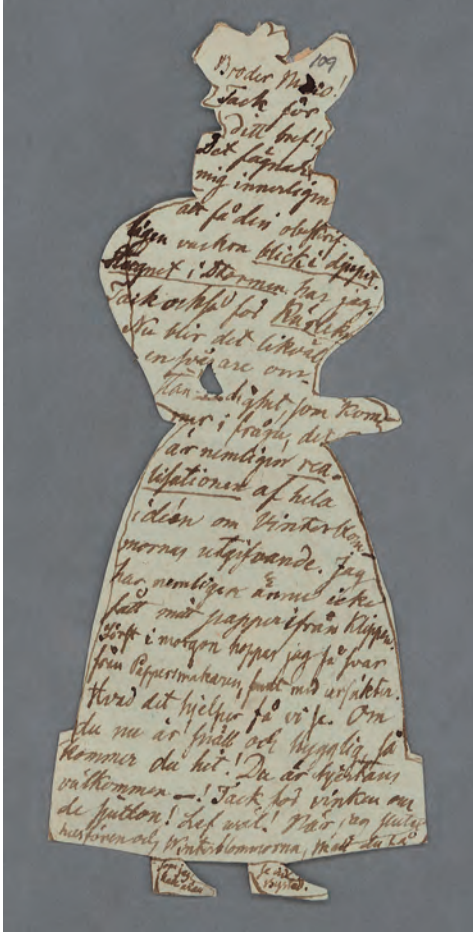 109
Broder Mio!
Tack för
ditt bref!
Det fägnade
mig innerligen
att få din obeskrif-
ligen vackra blick i djupet.
Skeppet i Stormen har jag.
Tack också för Kärlek
Nu blir det likväl
en svårare om-
ständighet, som kom-
mer i fråga, det
är nemligen rea-
lisationen af hela
idéen om Vinterblom-
mornas utgifvande. Jag
har nemligen ännu icke
fått mitt papper ifrån Klippan
Först i morgon hoppas jag få svar
från Pappersmakaren, fullt med ursäkter.
Hvad det hjelper få vi se. Om
du nu är snäll och hygglig, så
kommer du hit! Du är hjertans
välkommen —! Tack för vinken om
de! Lef väl! När jag
och Vinterblommorna, skall du få